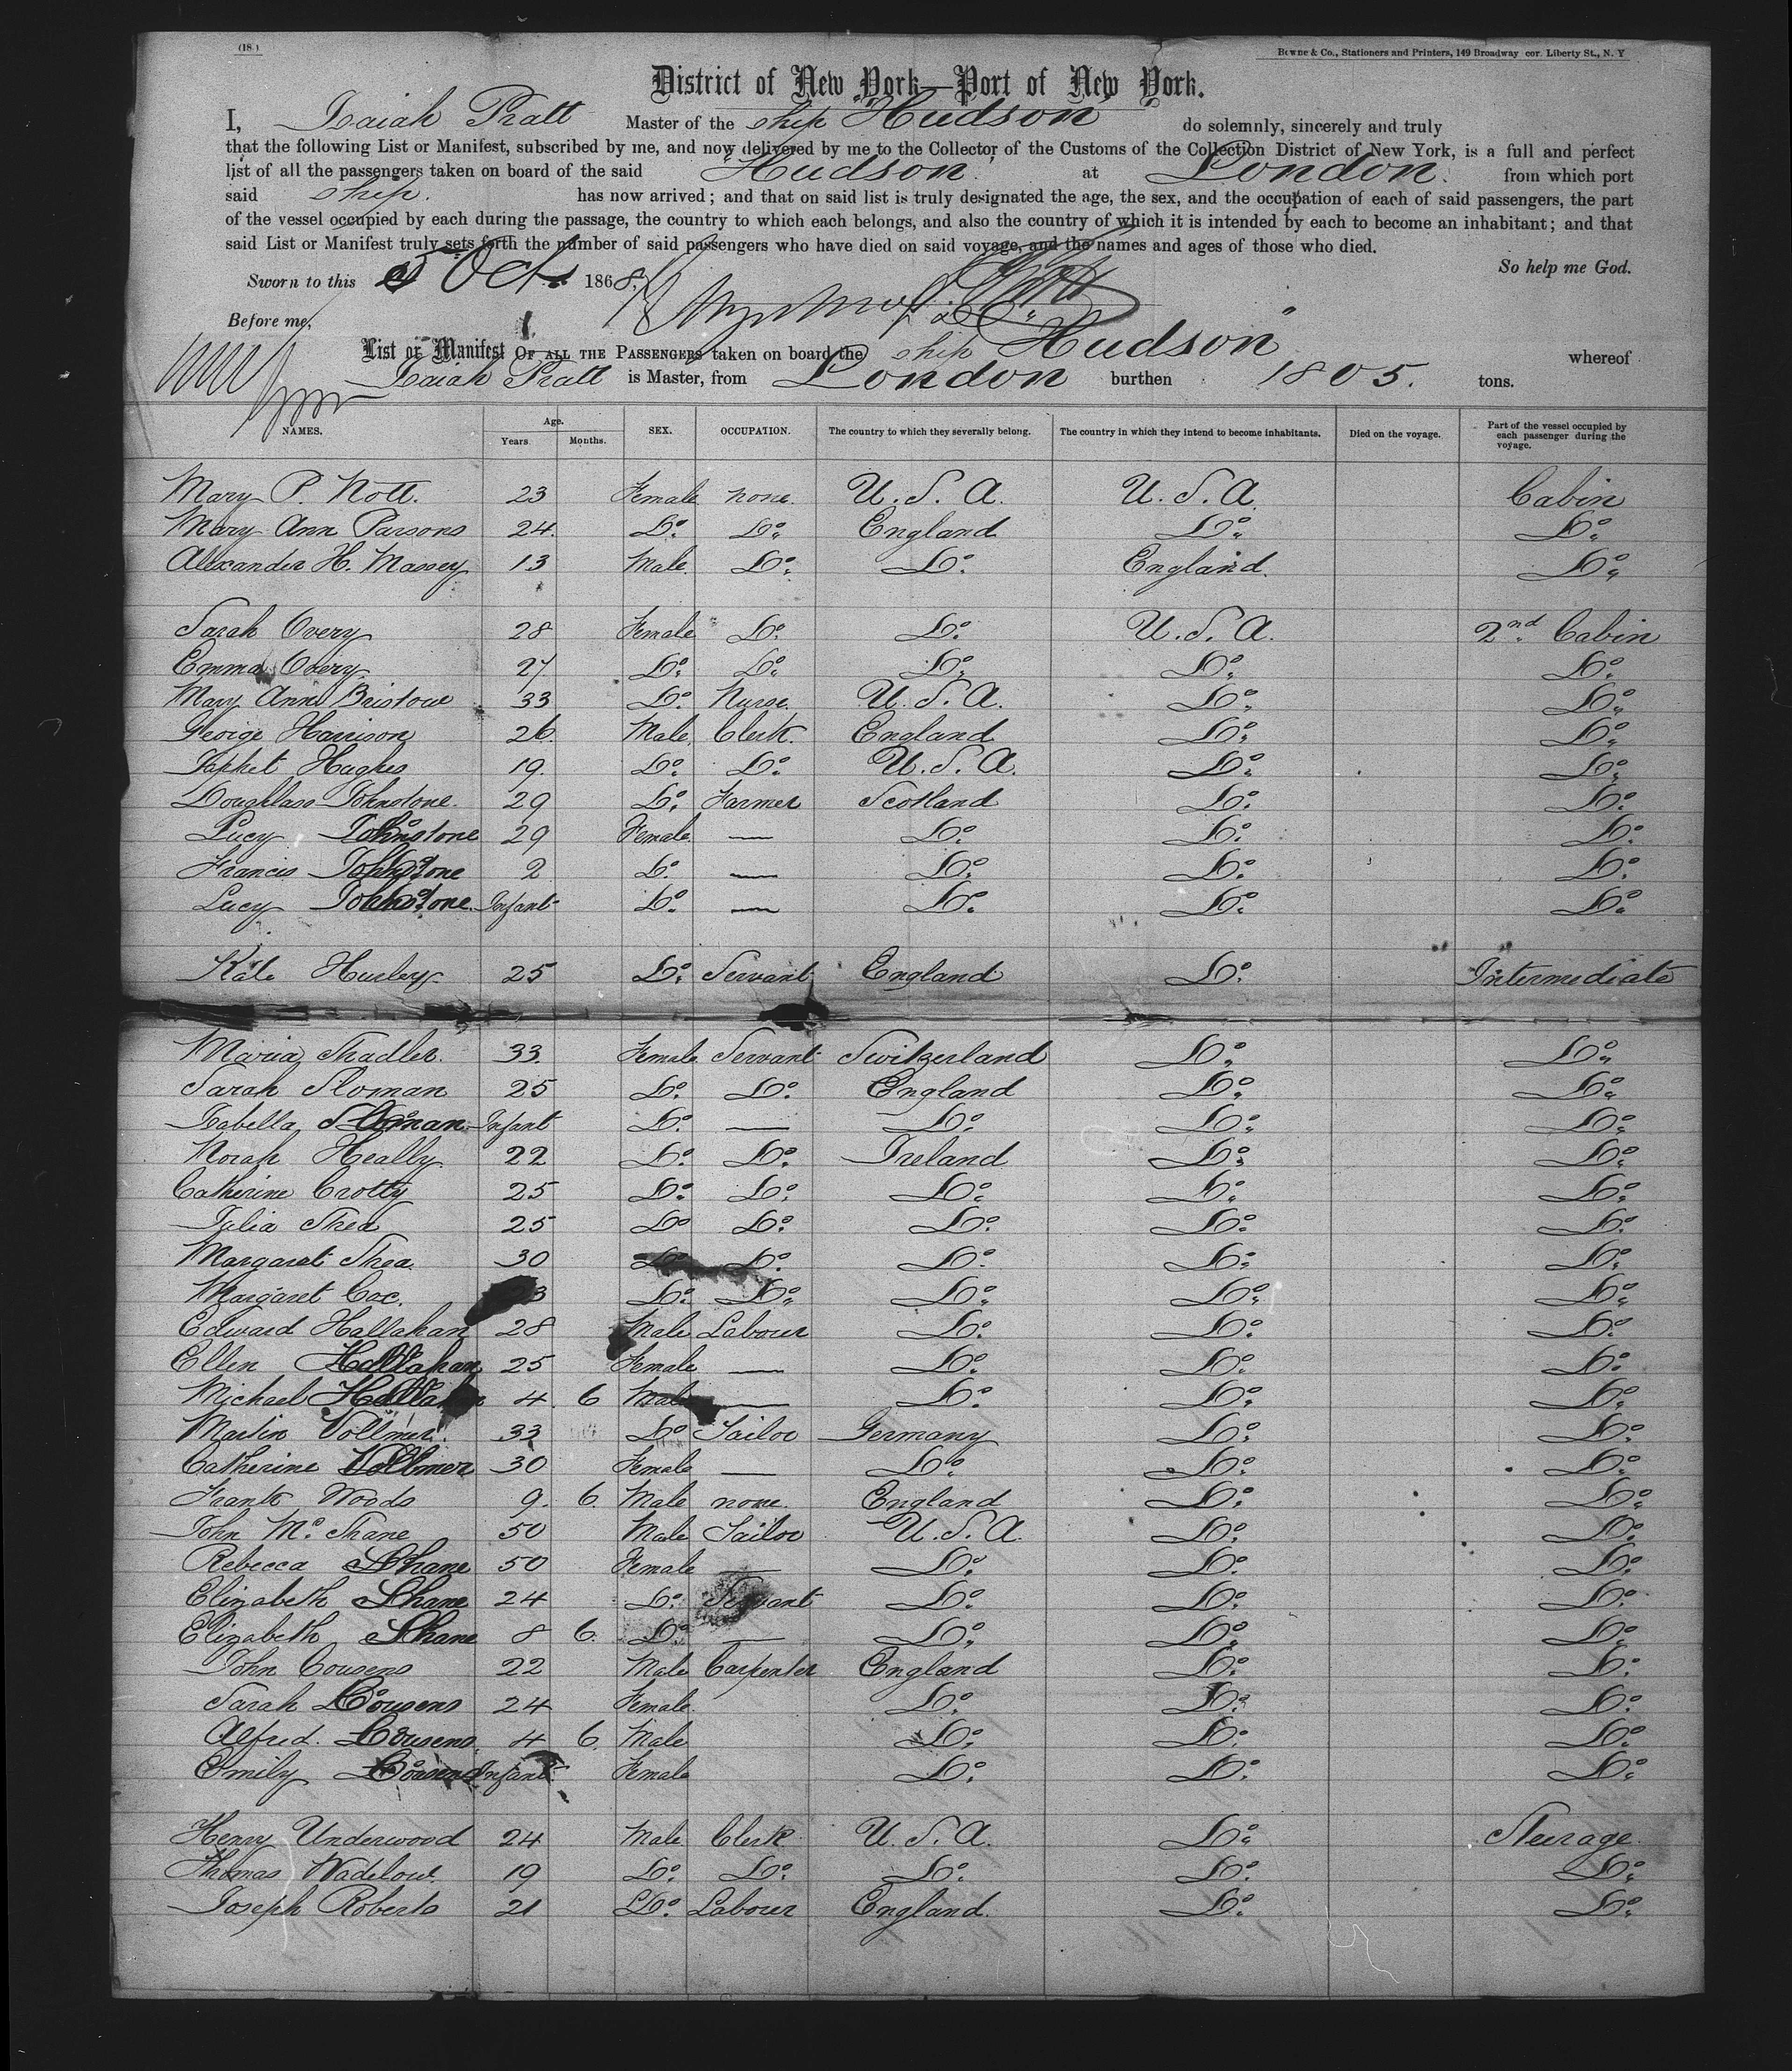 (18 )
Bowne & Co., Stationers and Printers, 149 Broadway cor. Liberty St., N. Y
District of New York—Port of New York.
I, Isaiah Pratt Master of the ship "Hudson" do solemnly, sincerely and truly
that the following List or Manifest, subscribed by me, and now delivered by me to the Collector of the Customs of the Collection District of New York, is a full and perfect
list of all the passengers taken on board of the said "Hudson" at London. from which port
said ship. has now arrived; and that on said list is truly designated the age, the sex, and the occupation of each of said passengers, the part
of the vessel occupied by each during the passage, the country to which each belongs, and also the country of which it is intended by each to become an inhabitant; and that
said List or Manifest truly sets forth the number of said passengers who have died on said voyage, and the names and ages of those who died.
So help me God.
Sworn to this 5 Oct 1868.
Before me,
List or Manifest OF ALL THE PASSENGERS taken on board the ship Hudson" whereof
Isaiah Pratt is Master, from London burthen 1805. tons.
NAMES. Age. Years. Months. SEX. OCCUPATION. The country to which they severally belong. The country in which they intend to become inhabitants. Died on the voyage. Part of the vessel occupied by each passenger during the voyage.
Mary P. Nott. 23 Female none. U. S. A. U. S. A. Cabin
Mary Ann Parsons 24. Do. Do. England Do. Do.
Alexander H. Massey 13 Male. Do. Do. England. Do.
Sarah Overy 28 Female Do. Do. U. S. A. 2nd Cabin
Emma Overy 27 Do. Do. Do. Do. Do.
Mary Ann Bristow 33 Do. Nurse. U. S. A. Do. Do.
George Harrison 26. Male. Clerk. England Do. Do.
Japhet Hughes 19. Do. Do. U. S. A. Do. Do.
Douglass Johnstone. 29 Do. Farmer Scotland Do. Do.
Lucy Johnstone 29 Female. — Do. Do. Do.
Francis Johnstone 2 Do. — Do. Do. Do.
Lucy Johnstone. Infant Do. — Do. Do. Do.
Kate Hurley 25 Do. Servant England Do. Intermediate
Maria Stadler. 33 Female Servant Switzerland Do. Do.
Sarah Sloman 25 Do. Do. England Do. Do.
Isabella Sloman Infant Do. — Do. Do. Do.
Norah Heally 22 Do. Do. Ireland Do. Do.
Catherine Crotty 25 Do. Do. Do. Do. Do.
Julia Shea 25 Do Do. Do. Do. Do.
Margaret Shea. 30 Do. Do. Do. Do. Do.
Margaret Coc. 3 Do. Do. Do. Do. Do.
Edward Hallahan 28 Male Labourer Do. Do. Do.
Ellen Hallahan 25 Female — Do. Do. Do.
Michael Hallahan 4. 6 Male — Do. Do. Do.
Martin Vollmer. 33 Do Sailor Germany Do. Do.
Catherine Vollmer 30 Female — Do. Do. Do.
Frank Woods 9. 6. Male none. England Do. Do.
John Mc. Shane 50 Male Sailor U. S. A. Do. Do.
Rebecca Shane 50 Female — Do. Do. Do.
Elizabeth Shane 24 Do. Servant Do. Do. Do.
Elizabeth Shane 8 6. Do. — Do. Do. Do.
John Cousens 22 Male Carpenter England Do. Do.
Sarah Cousens 24 Female. Do. Do. Do.
Alfred. Cousens. 4 6. Male Do. Do. Do.
Emily Cousens Infant Female Do. Do. Do.
Henry Underwood 24 Male. Clerk U. S. A. Do. Steerage.
Thomas Wadelow. 19 Do. Do. Do. Do. Do.
Joseph Roberts 21 Do. Labourer England. Do. Do.